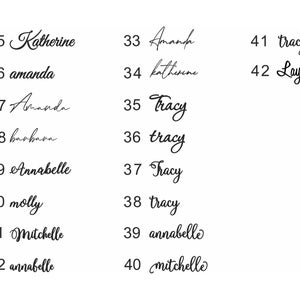 5 Katherine
6 amanda
7 Amanda
8 barbara
9 Annabelle
0 molly
1 Mitchelle
2 annabelle
33 Amanda
34 katherine
35 Tracy
36 tracy
37 Tracy
38 tracy
39 annabelle
40 mitchelle
41 trac
42 Lay